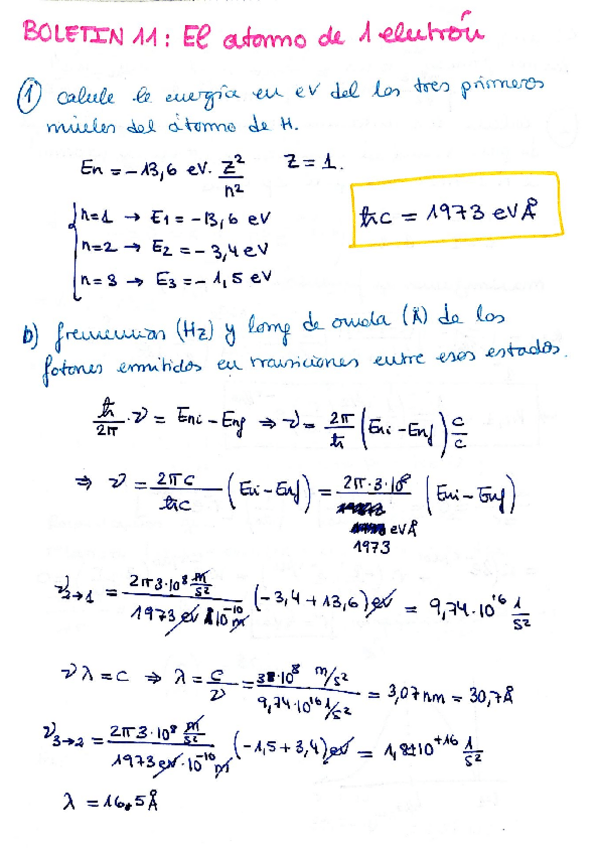 BOLETIN 11: El atomo de 1 elutrón
① calcule la energía en eV del los tres primeros
niveles del átomo de H.
En = -13,6 eV. Z²/n²   Z = 1.
n=1 → E1 = -13,6 eV
n=2 → E2 = -3,4 eV
n=3 → E3 = -1,5 eV
ħc = 1973 eV Å
b) frecuencias (Hz) y long de onda (Å) de los
fotones emitidos en transiciones entre esos estados.
ħ/2π · ν = Eni - Enf ⇒ ν = 2π/ħ (Eni - Enf) c/c
⇒ ν = 2πc/ħc (Eni - Enf) = 2π·3·10⁸/1973 eVÅ (Eni - Enf)
ν2→1 = 2π3·10⁸ m/s²/1973 eV Å 10⁻¹⁰ m (-3,4 + 13,6) eV = 9,74·10¹⁶ 1/s²
νλ = c ⇒ λ = c/ν = 3·10⁸ m/s²/9,74·10¹⁶ 1/s² = 3,07 nm = 30,7 Å
ν3→2 = 2π3·10⁸ m/s²/1973 eV·10⁻¹⁰ m (-1,5 + 3,4) eV = 1,8·10⁺¹⁶ 1/s²
λ = 16.5 Å